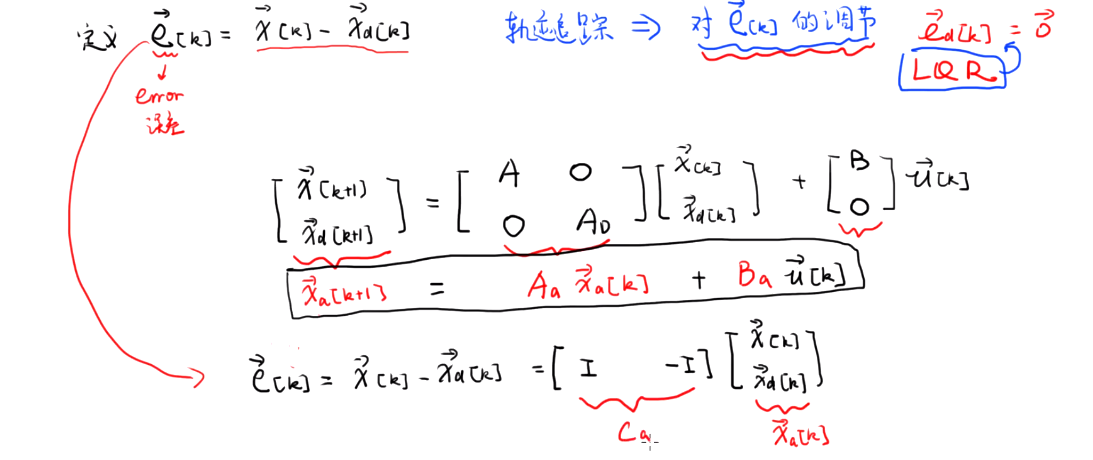 定义 e⃗[k] = x⃗[k] - x⃗d[k] 轨迹追踪 ⇒ 对 e⃗[k] 的调节 e⃗d[k] = 0⃗
error
误差
LQR
[x⃗[k+1]; x⃗d[k+1]] = [A 0; 0 AD] [x⃗[k]; x⃗d[k]] + [B; 0] u⃗[k]
x⃗a[k+1] = Aa x⃗a[k] + Ba u⃗[k]
e⃗[k] = x⃗[k] - x⃗d[k] = [I -I] [x⃗[k]; x⃗d[k]]
Ca x⃗a[k]